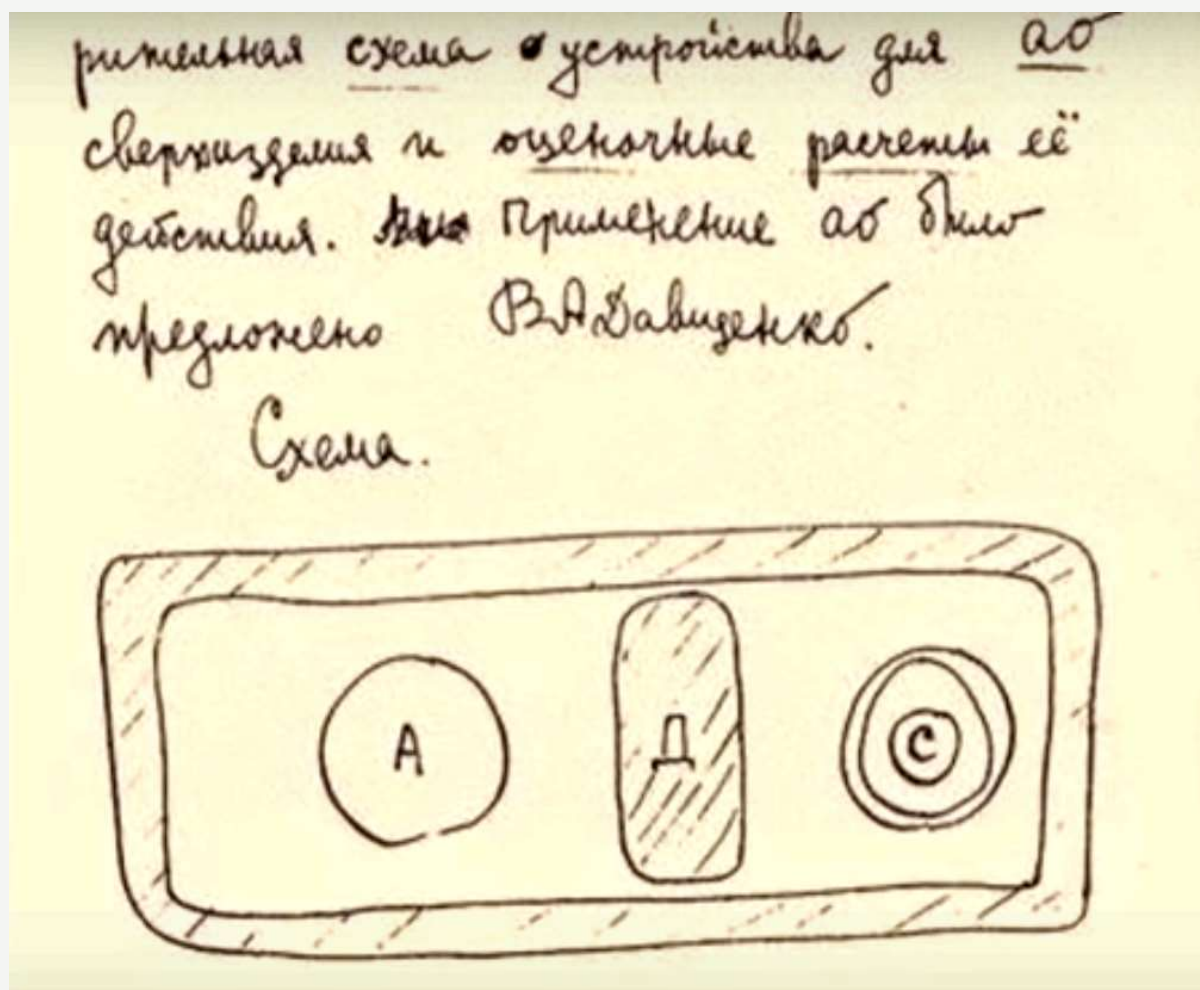 рительная схема устройства для аб
сверхизделия и оценочные расчеты её
действия. Применение аб было
предложено В А Давиденко.
Схема.
А Д С